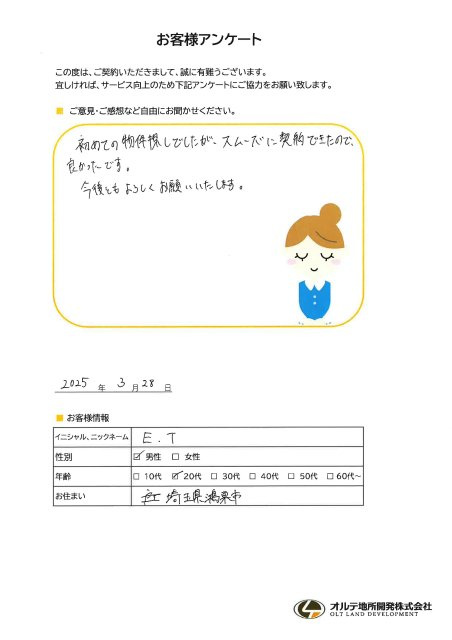 お客様アンケート
この度は、ご契約いただきまして、誠に有難うございます。
宜しければ、サービス向上のため下記アンケートにご協力をお願い致します。
■ ご意見・ご感想など自由にお聞かせください。
初めての物件探しでしたが、スムーズに契約できたので、
良かったです。
今後ともよろしくお願いいたします。
2025 年 3 月 28 日
■ お客様情報
イニシャル、ニックネーム E.T
性別 ☑ 男性 □ 女性
年齢 □ 10代 ☑ 20代 □ 30代 □ 40代 □ 50代 □ 60代～
お住まい 埼玉県鴻巣市
オルテ地所開発株式会社
OLT LAND DEVELOPMENT